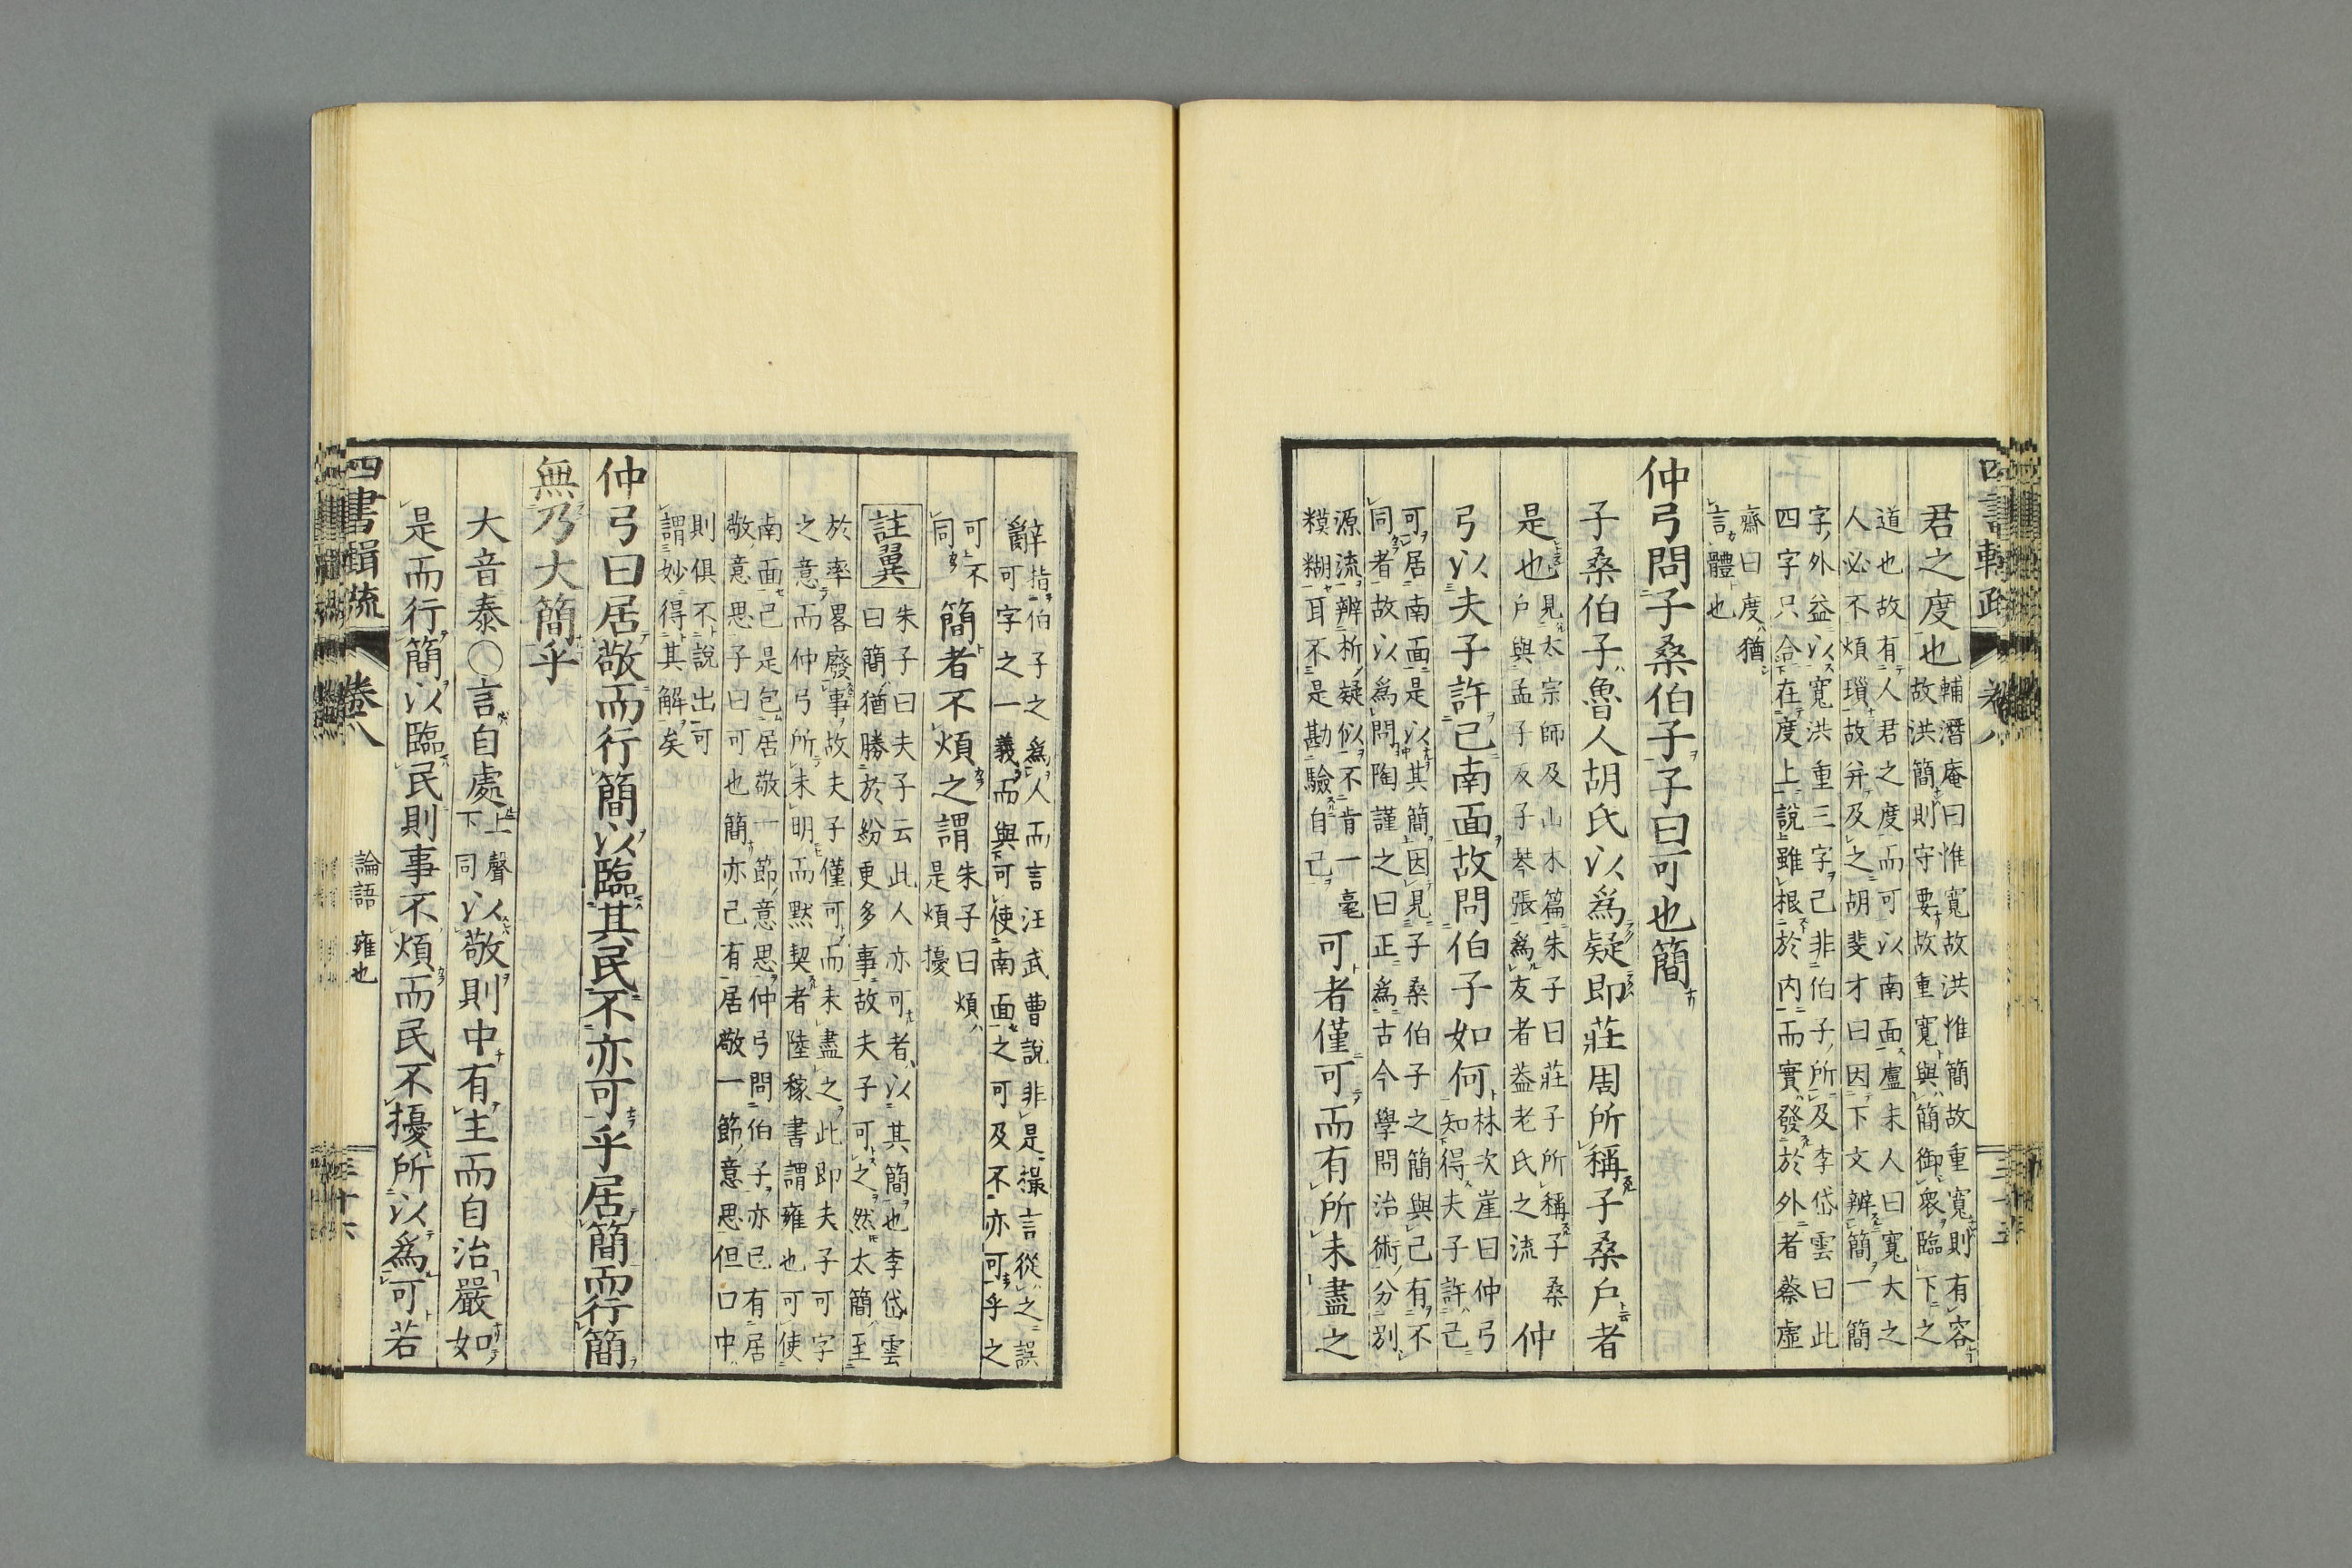 君之度也輔潛庵曰惟寬故洪惟簡故重寬則有容
故洪簡則守要故重寬與簡御衆臨下之
道也故有人君之度而可以南面盧未人曰寬大之
人必不煩瑣故并及之胡斐才曰因下文辨簡一簡
字外益以寬洪重三字己非伯子所及李岱雲曰此
四字只合在度上說雖根於内而實發於外者蔡虛
齋曰度猶
言體也
仲弓問子桑伯子子曰可也簡
子桑伯子魯人胡氏以爲疑即莊周所稱子桑戶者
是也見太宗師及山木篇朱子曰莊子所稱子桑
戶與孟子反子琴張爲友者益老氏之流仲
弓以夫子許己南面故問伯子如何林次崖曰仲弓
知得夫子許己
可居南面是以其簡因見子桑伯子之簡與己有不
同者故以爲問陶謹之曰正爲古今學問治術分別
源流辨析疑似不肯一毫
糢糊耳不是勘驗自己可者僅可而有所未盡之
辭指伯子之爲人而言汪武曹說非是撮言從之誤
可字之一義而與可使南面之可及不亦可乎之
可不
同簡者不煩之謂朱子曰煩
是煩擾
註翼朱子曰夫子云此人亦可者以其簡也李岱雲
曰簡猶勝於紛更多事故夫子可之然太簡至
於率畧廢事故夫子僅可而未盡之此即夫子可字
之意而仲弓所未明而默契者陸稼書謂雍也可使
南面己是包居敬一節意思仲弓問伯子亦已有居
敬意思子曰可也簡亦己有居敬一節意思但口中
則俱不說出可
謂妙得其解矣
仲弓曰居敬而行簡以臨其民不亦可乎居簡而行簡
無乃大簡乎
大音泰○言自處上聲
下同以敬則中有主而自治嚴如
是而行簡以臨民則事不煩而民不擾所以爲可若
四書輯疏
卷八
論語
雍也
三十六